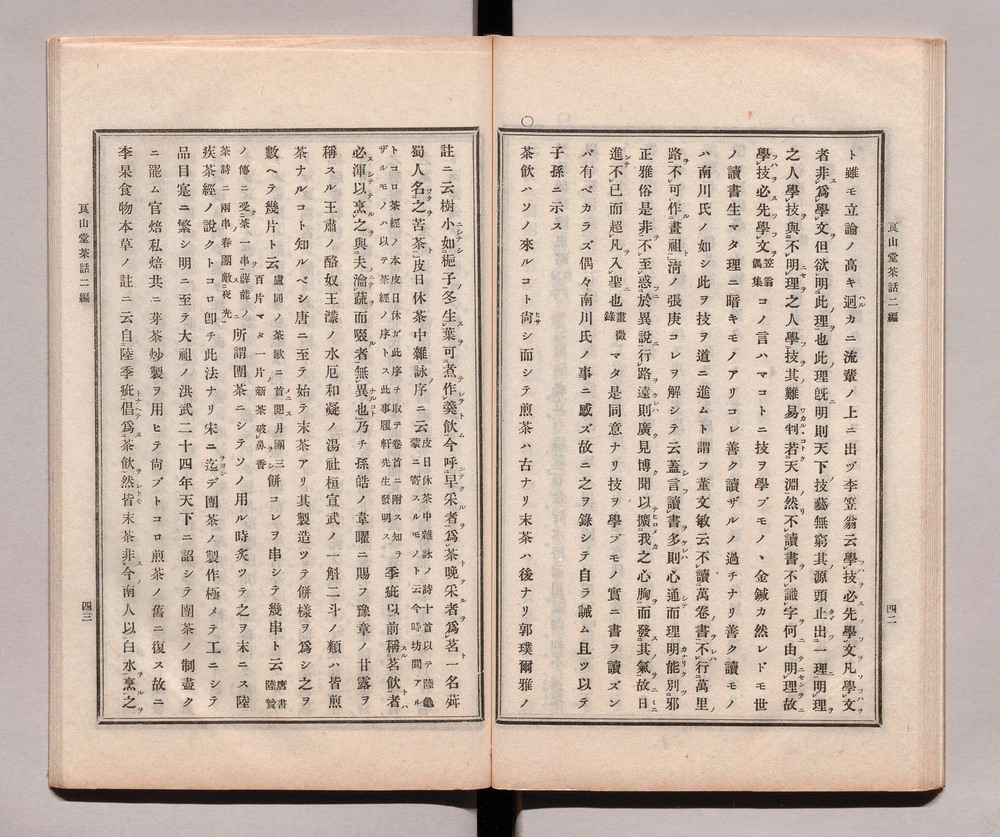 ト雖モ立論ノ高キ迥カニ流輩ノ上ニ出ヅ李笠翁云學技必先學文凡學文
者非爲學文但欲明此理也此理既明則天下技藝無窮其源頭止出一理明理
之人學技與不明理之人學技其難易判若天淵然不讀書不識字何由明理故
學技必先學文笠翁偶集コノ言ハマコトニ技ヲ學ブモノヽ金鍼カ然レドモ世
ノ讀書生マタ理ニ暗キモノアリコレ善ク讀ザルノ過チナリ善ク讀モノ
ハ南川氏ノ如シ此ヲ技ヲ道ニ進ムト謂フ董文敏云不讀萬卷書不行萬里
路不可作畫祖淸ノ張庚コレヲ解シテ云蓋言讀書多則心通而理明能別邪
正雅俗是非不至惑於異說行路遠則廣見博聞以擴我之心胸而發其氣故日
進不已而超凡入聖也畫徵錄マタ是同意ナリ技ヲ學ブモノ實ニ書ヲ讀ズン
バ有ベカラズ偶々南川氏ノ事ニ感ズ故ニ之ヲ錄シテ自ラ誡ム且ツ以テ
子孫ニ示ス
○茶飮ハソノ來ルコト尙シ而シテ煎茶ハ古ナリ末茶ハ後ナリ郭璞爾雅ノ
䒾山堂茶話二編
四二
註ニ云樹小如梔子冬生葉可煮作羹飮今呼早采者爲茶晩采者爲茗一名荈
蜀人名之苦茶皮日休茶中雜詠序ニ云皮日休茶中雜詠ノ詩十首以テ陸龜蒙ニ寄スルモノト云今時坊間アル
トコロ茶經ノ本皮日休ガ此序ヲ取テ卷首ニ附ス知ラザルモノハ以テ茶經ノ序トス此事履軒先生發明ス季疵以前稱茗飮者
必渾以烹之與夫瀹蔬而啜者無異也乃チ孫皓ノ韋曜ニ賜フ豫章ノ甘露ヲ
稱スル王肅ノ酪奴王濛ノ水厄和凝ノ湯社桓宣武ノ一斛二斗ノ類ハ皆煎
茶ナルコト知ルベシ唐ニ至テ始テ末茶アリ其製造ツテ餠樣ヲ爲シ之ヲ
數ヘテ幾片ト云盧同ノ茶歌ニ首閱月團三百片マタ一片新茶破鼻香餠コレヲ串シテ幾串ト云唐書陸贄
ノ傳ニ受茶一串薛能ノ茶詩ニ兩串春團敵夜光所謂團茶ニシテソノ用ル時炙ツテ之ヲ末ニス陸
疾茶經ノ說クトコロ卽チ此法ナリ宋ニ迄デ團茶ノ製作極メテ工ニシテ
品目寔ニ繁シ明ニ至テ大祖ノ洪武二十四年天下ニ詔シテ團茶ノ制盡ク
ニ罷ム官焙私焙共ニ芽茶炒製ヲ用ヒテ尙ブトコロ煎茶ノ舊ニ復ス故ニ
李杲食物本草ノ註ニ云自陸季疵倡爲茶飮然皆末茶非今南人以白水烹之
山堂茶話二編
四三